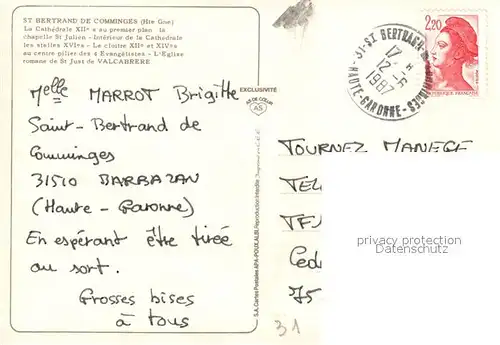 ST BERTRAND DE COMMINGES (Hte Gne)
La Cathédrale XIIe s au premier plan la
chapelle St Julien - Intérieur de la Cathédrale
les stalles XVIe s - Le cloître XIIe et XIVe s
au centre pilier des 4 Évangélistes - L'Église
romane de St Just de VALCABRERE
EXCLUSIVITÉ
AS DE CŒUR
AS
Melle MARROT Brigitte
Saint-Bertrand de
Comminges
31510 BARBAZAN
(Haute-Garonne)
En espérant être tirée
au sort.
Grosses bises
à tous
S.A. Cartes Postales APA-POUX ALBI Reproduction Interdite
31-ST BERTRAND-DE-COMMINGES
17 H
12 -6
1987
HAUTE-GARONNE
2,20
RÉPUBLIQUE FRANÇAISE
TOURNEZ MANEGE
TEL
TF1
Ced
75
31
privacy protection
Datenschutz